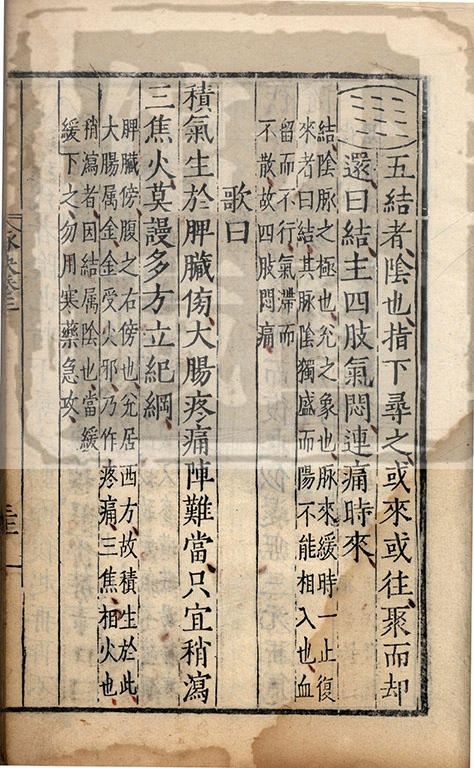 五結者陰也指下尋之或來或往聚而却
還曰結主四肢氣悶連痛時來
結陰脉之極也允之象也脉來緩時一止復
來者曰結其脉陰獨盛而陽不能相入也血
留而不行氣滯而
不散故四肢悶痛
歌曰
積氣生於脾臟傍大腸疼痛陣難當只宜稍瀉
三焦火莫謾多方立紀綱
脾臟傍腹之右傍也允居西方故積生於此
大腸属金金受火邪乃作疼痛三焦相火也
稍瀉者因結属陰也當緩
緩下之勿用寒藥急攻